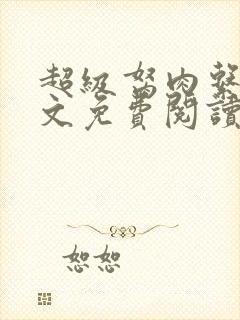 超級怒肉整
文免費閱讀
恕恕